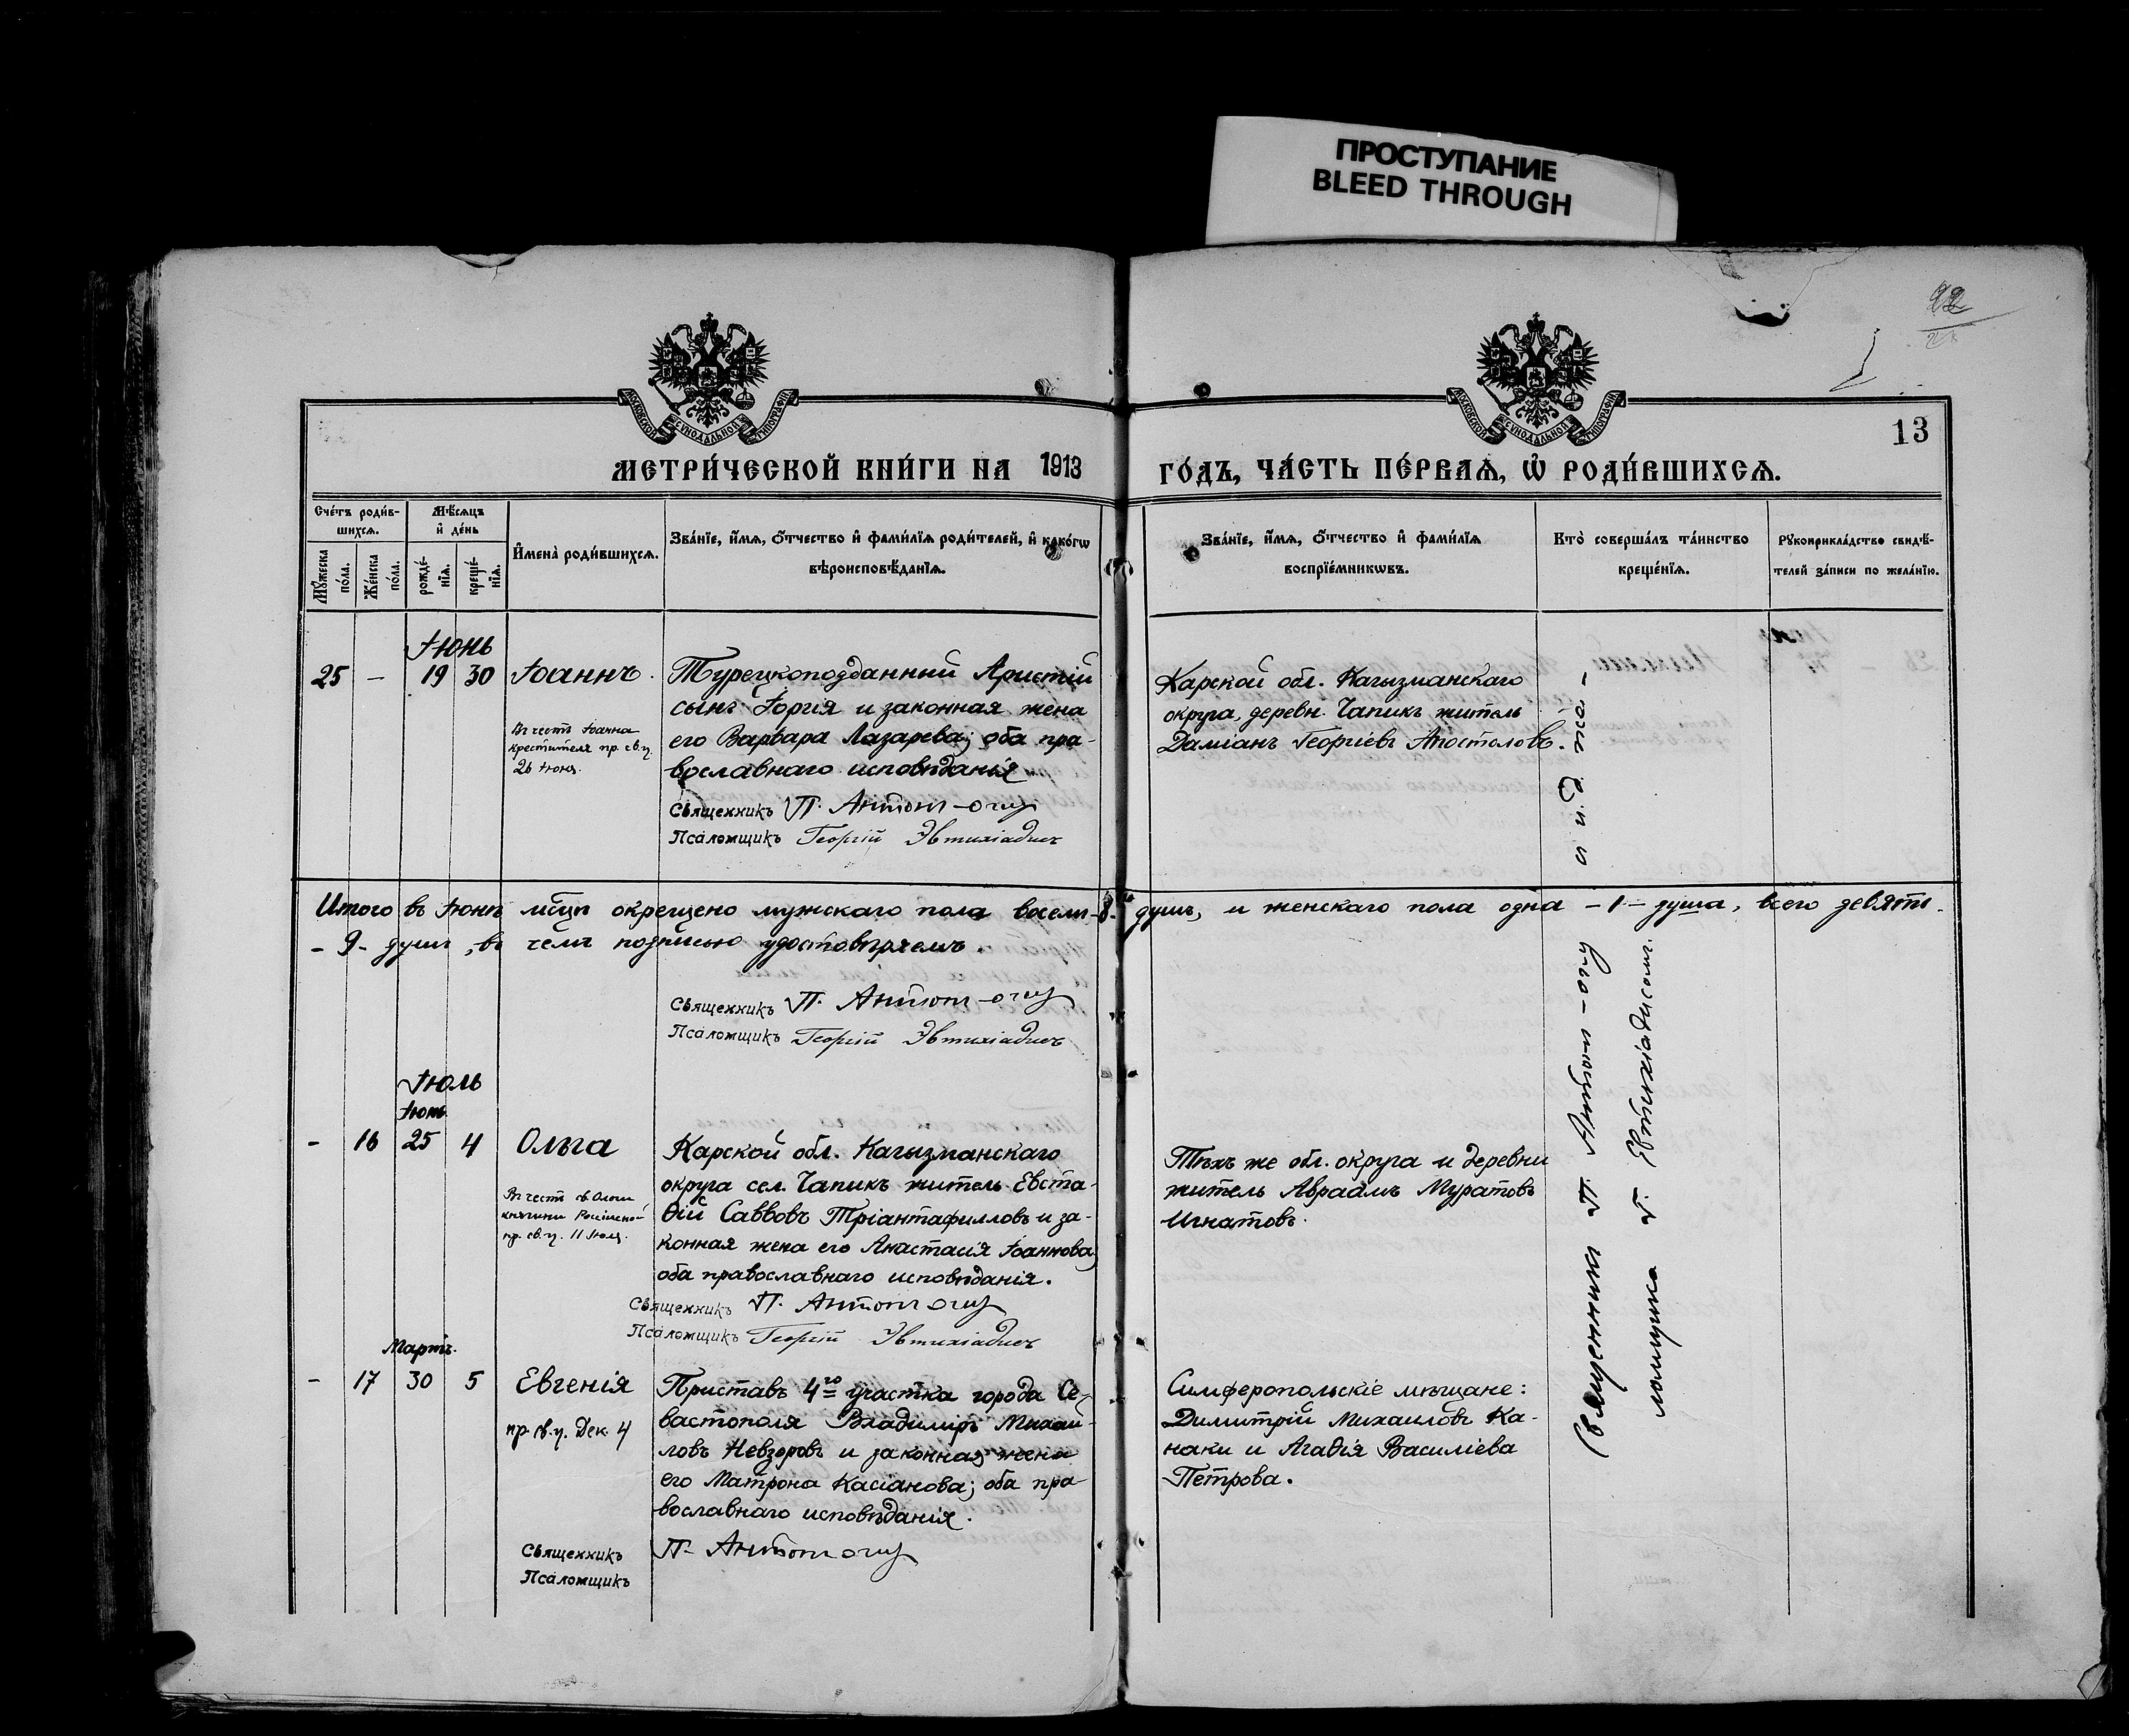 ПРОСТУПАНИЕ
BLEED THROUGH
13
МЕТРИ́ЧЕСКОЙ КНИ́ГИ НА 1913 ГО́ДЪ, ЧА́СТЬ ПЕ́РВАѦ, Ѡ РОДИ́ВШИХСѦ.
МОСКОВСКОЙ СѴНОДАЛЬНОЙ ТИПОГРАФІИ
МОСКОВСКОЙ СѴНОДАЛЬНОЙ ТИПОГРАФІИ
Сче́тъ роди́в-
шихсѧ.
Мѣ́сѧцъ
и де́нь
Мꙋ́жеска по́ла.
Же́нска по́ла.
рожде́-нїѧ.
креще́-нїѧ.
И҆мена̀ роди́вшихсѧ.
Зва́нїе, и҆́мѧ, о҆́тчество и҆ фами́лїѧ роди́телей, и҆ како́гѡ
вѣроисповѣ́данїѧ.
Зва́нїе, и҆́мѧ, о҆́тчество и҆ фами́лїѧ
воспрїе́мникѡвъ.
Кто̀ соверша́лъ та́инство
креще́нїѧ.
Рꙋкоприкла́дство свидѣ́-
телей за́писи по жела́нїю.
Іюнь
25 – 19 30 Іоаннъ.
Въ честь Іоанна
Крестителя пр. св. ц.
26 Іюня.
Турецкоподданный Аристій
сынъ Іоргія и законная жена
его Варвара Лазарева; оба пра-
вославнаго исповѣданія
Священникъ П. Антон-оглу
Псаломщикъ Георгій Эвтихіадисъ
Карской обл. Кагызманскаго
округа, деревн. Чапикъ житель
Даміанъ Георгіевъ Апостоловъ.
Итого въ Іюнѣ мѣсяцѣ окрещено мужскаго пола восемь -8- душъ, и женскаго пола одна -1- душа, всего девять
- 9 - душъ, въ чемъ подписью удостовѣряемъ.
Священникъ П. Антон-оглу
Псаломщикъ Георгій Эвтихіадисъ
Іюль
Іюнь
- 16 25 4 Ольга
Въ честь св Ольги
княгини Россійской
пр. св. ц. 11 Іюля.
Карской обл. Кагызманскаго
округа сел. Чапикъ житель Евста-
ѳій Саввовъ Тріантафилловъ и за-
конная жена его Анастасія Іоаннова;
оба православнаго исповѣданія.
Священникъ П. Антон оглу
Псаломщикъ Георгій Эвтихіадисъ
Тѣхъ же обл. округа и деревни
житель Авраамъ Муратовъ
Игнатовъ.
Мартъ.
- 17 30 5 Евгенія
пр. св. ц. Дек. 4
Приставъ 4го участка города Се-
вастополя Владиміръ Михаи-
ловъ Невзоровъ и законная жена
его Матрона Касіанова; оба пра-
вославнаго исповѣданія.
Священникъ П. Антон оглу
Псаломщикъ
Симферопольскіе мѣщане:
Димитрій Михаиловъ Ка-
наки и Агафія Василіева
Петрова.
Священникъ П. Антон-оглу